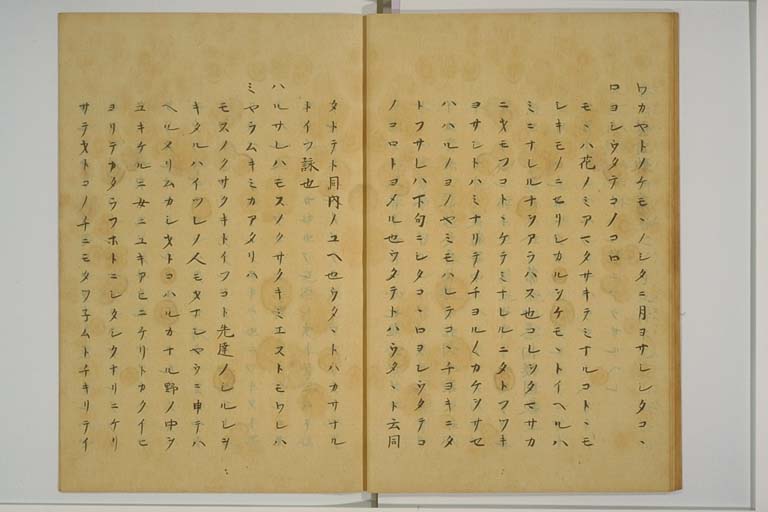 ワカヤトノケモヽノシタニ月ヨサシシタコヽ
ロヨシウタテコノコロ
モヽハ花ノミアマタサキテミナルコトヽモ
シキモノニセリシカルシケモヽトイヘルハ
ミニナレルナシアラハス也コレシタマサカ
ニ木モフコトミケテミナレルニタトフツキ
ヨサシトハミナリテノチヨル〳〵カケシサセ
ハハルノヨノヤミモハレテコヽチヨキニタ
トフサレハ下句ニシタコヽロヨシウタテコ
ノコロトヨメル也ウタテトハウタヽト云同
タトテト同内ノユヘ也ウタヽトハカサナル
トイフ詠也
ハルサレハモスノクサクキミエストモワレハ
ミヤラムキミカアタリハ
モスノクサクキトイフコト先達ノシルシヲ
キタルハイツレノ人モ木ナシヤウニ申テハ
ヘルメリムカシ木トコハルカナル野ノ中ヲ
ユキケルニ女ニユキアヒニケリトカクイヒ
ヨリテカタラフホトニシタシクナリニケリ
サテ木トコノチニモタツ子ムトチキリテイ